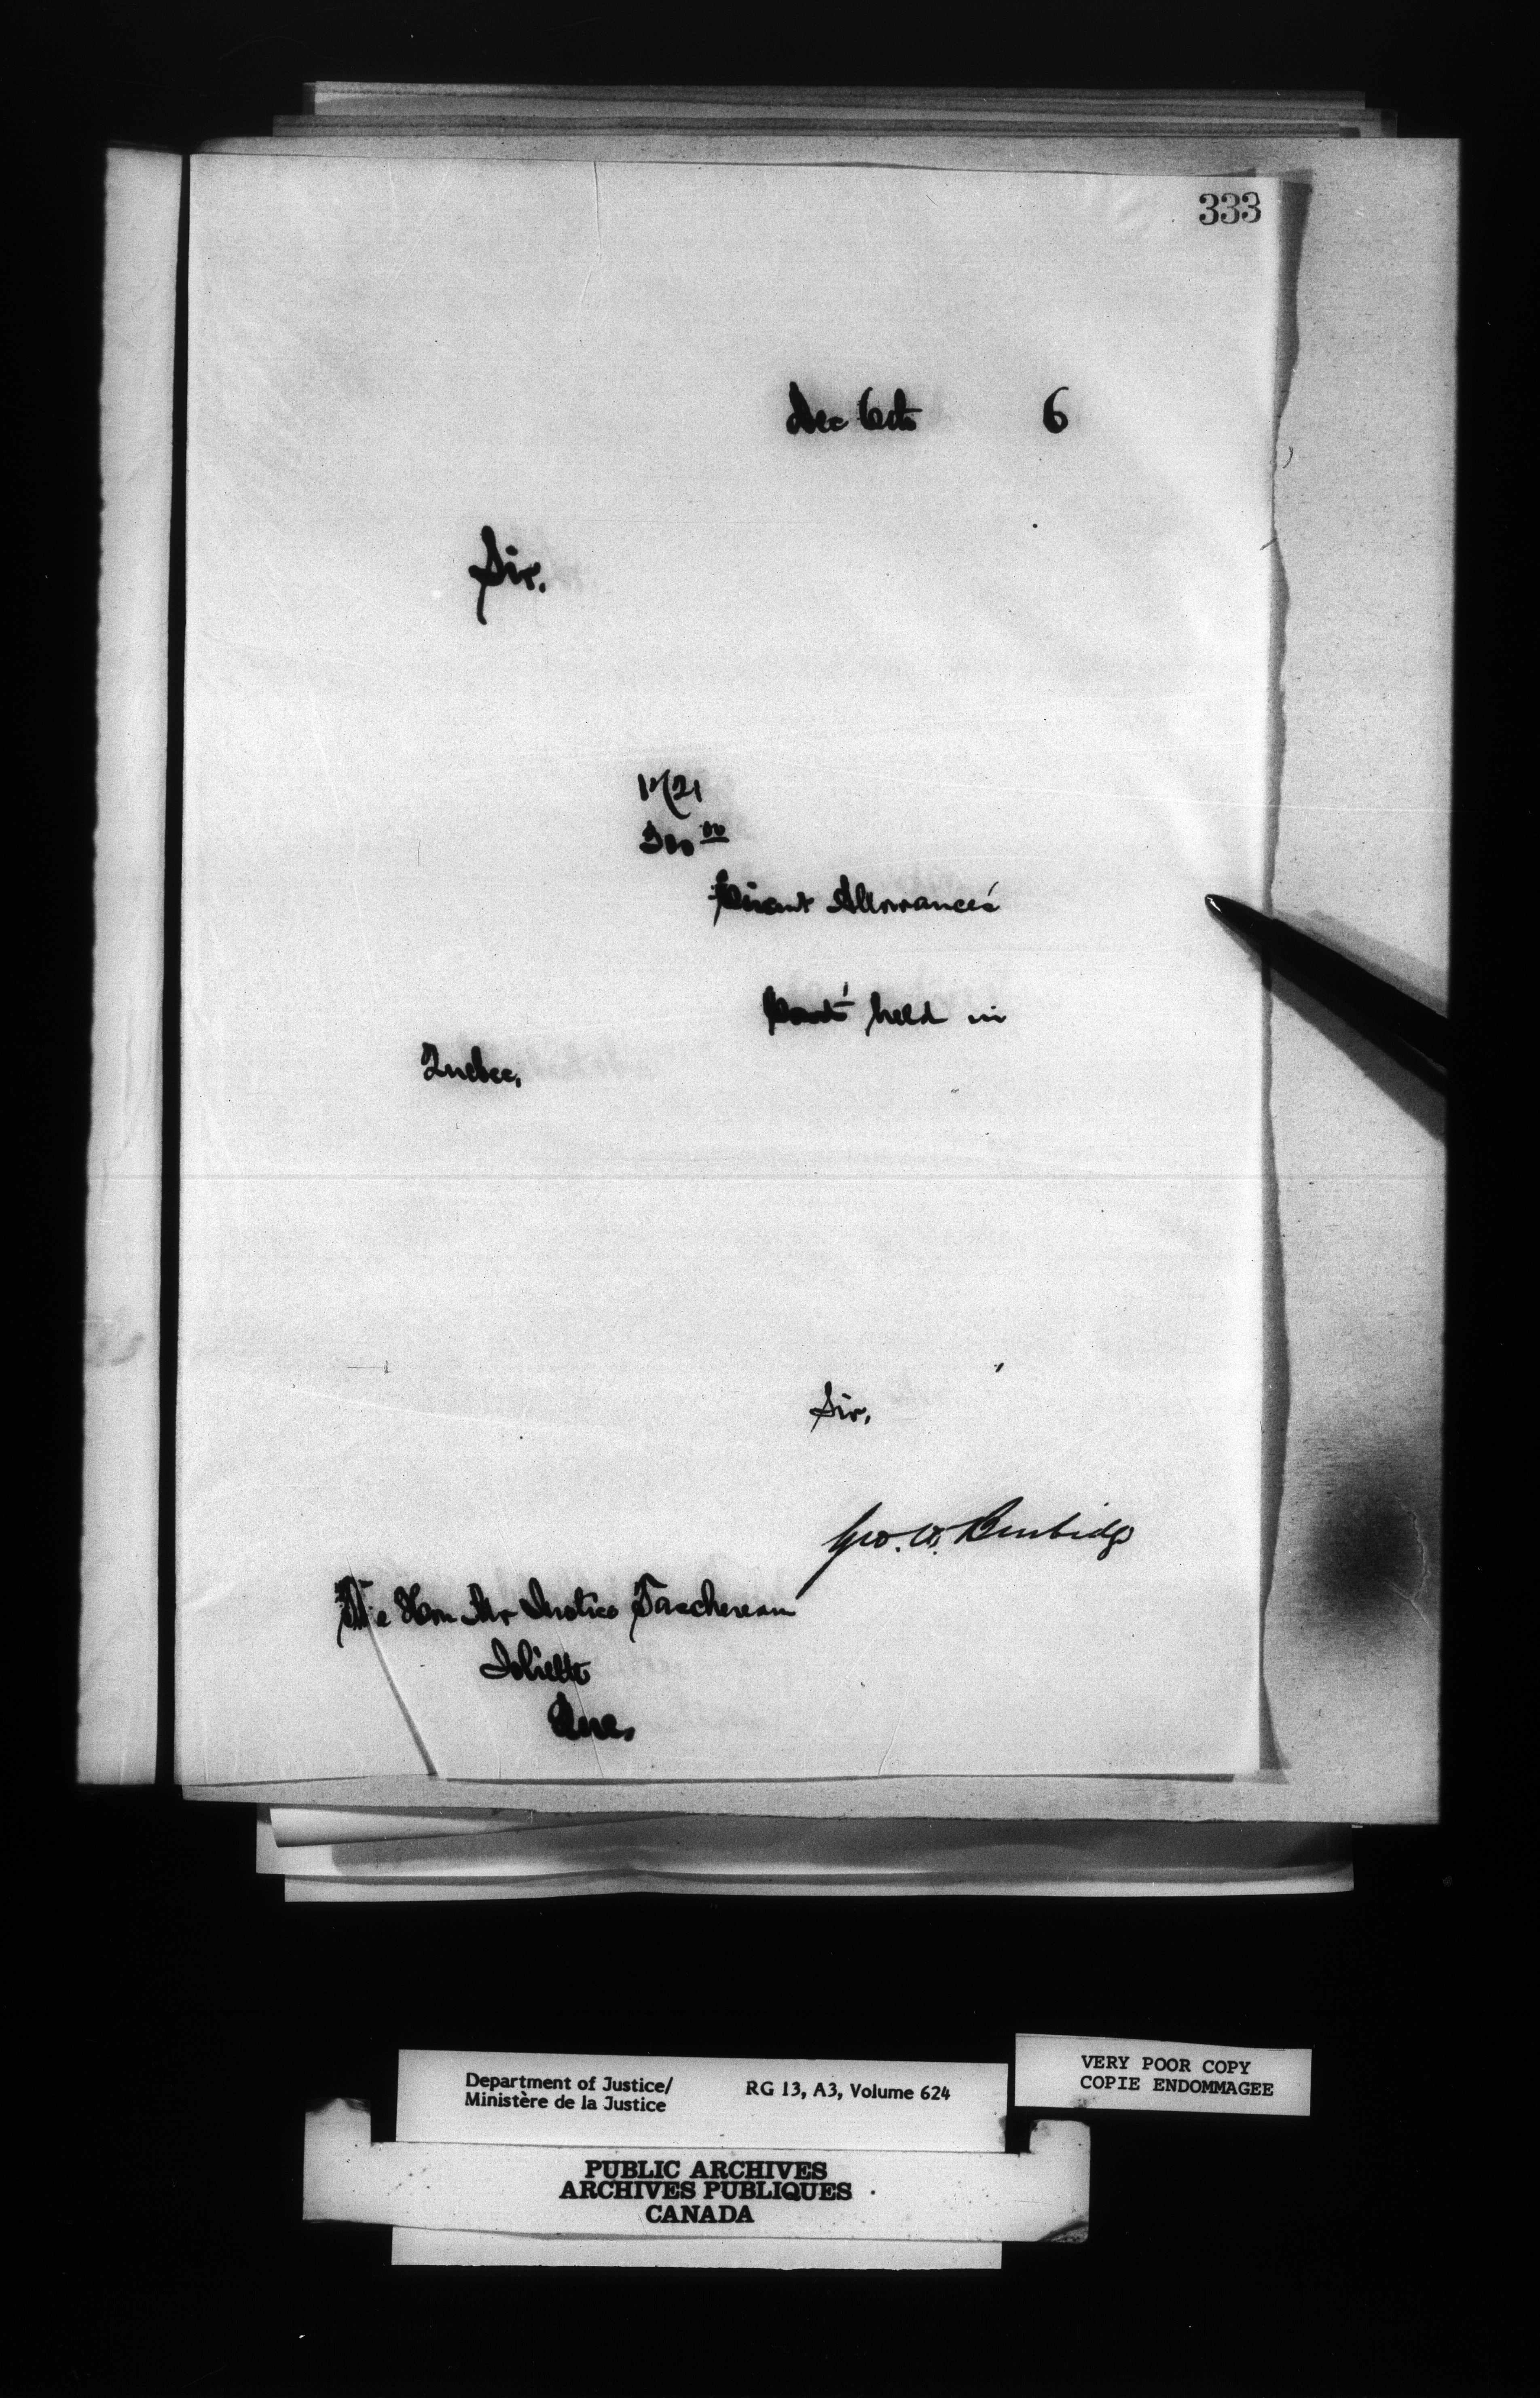 333
Dec 6th 6
Sir,
1721
300 00
Circuit Allowances
Court held in
Quebec,
Sir,
Geo. W. Burbidge
The Hon Mr Justice Taschereau
Joliette
Que.
Department of Justice/
Ministère de la Justice
RG 13, A3, Volume 624
VERY POOR COPY
COPIE ENDOMMAGEE
PUBLIC ARCHIVES
ARCHIVES PUBLIQUES
CANADA